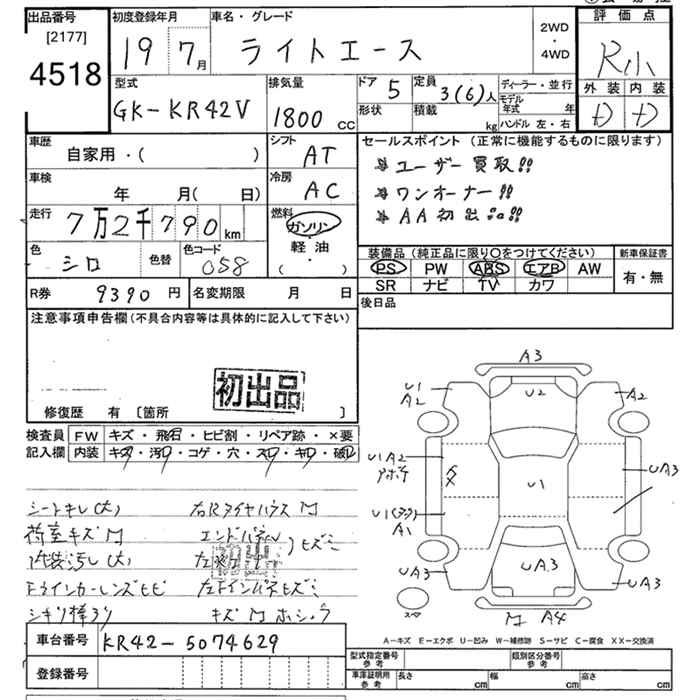 出品番号 初度登録年月 車名・グレード 2WD・4WD 評価点
[2177]
4518 19 7月 ライトエース R小
型式 排気量 ドア 5 定員 3(6)人 ディーラー・並行 外装 内装
GK-KR42V 1800cc 形状 積載 kg モデル年式 年 D D
ハンドル 左・右
車歴 シフト セールスポイント (正常に機能するものに限ります)
自家用・( ) AT ユーザー買取!!
車検 冷房 ワンオーナー!!
年 月( 日) AC AA初出品!!
走行 燃料
7万2千790km ガソリン
軽・油
( ・ )
色 シロ 色替 色コード 058
装備品 (純正品に限り○をつけてください) 新車保証書
PS PW ABS エアB AW 有・無
SR ナビ TV カワ
R券 9390円 名変期限 月 日 後日品
注意事項申告欄(不具合内容等は具体的に記入して下さい)
初出品
修復歴 有 [箇所 ]
検査員 FW キズ・飛石・ヒビ割・リペア跡・×要
記入欄 内装 キズ・汚レ・コゲ・穴・スレ・キレ・破レ
シートキレ(大) 右Rタイヤハウス M
荷室キズ M エンドパネル
内装汚レ(大) ヒズミ
初出
Fウインカーレンズヒビ 左Fインパネヒズミ
キズ M
A3
U1 A2 U2 A2
U1 A2 U1 UA3
U1 A1
UA3 UA3 UA3
M A4
スペ
A-キズ E-エクボ U-凹み W-補修跡 S-サビ C-腐食 XX-交換済
車台番号 KR42-5074629
登録番号
型式指定番号 参考 類別区分番号 参考
車庫証明用 参考 長さ cm 幅 cm 高さ cm